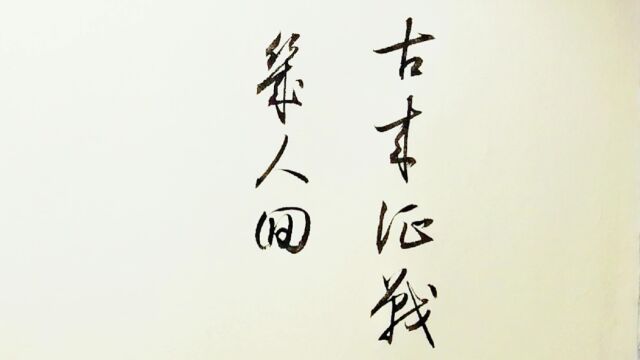 古来征战
几人回